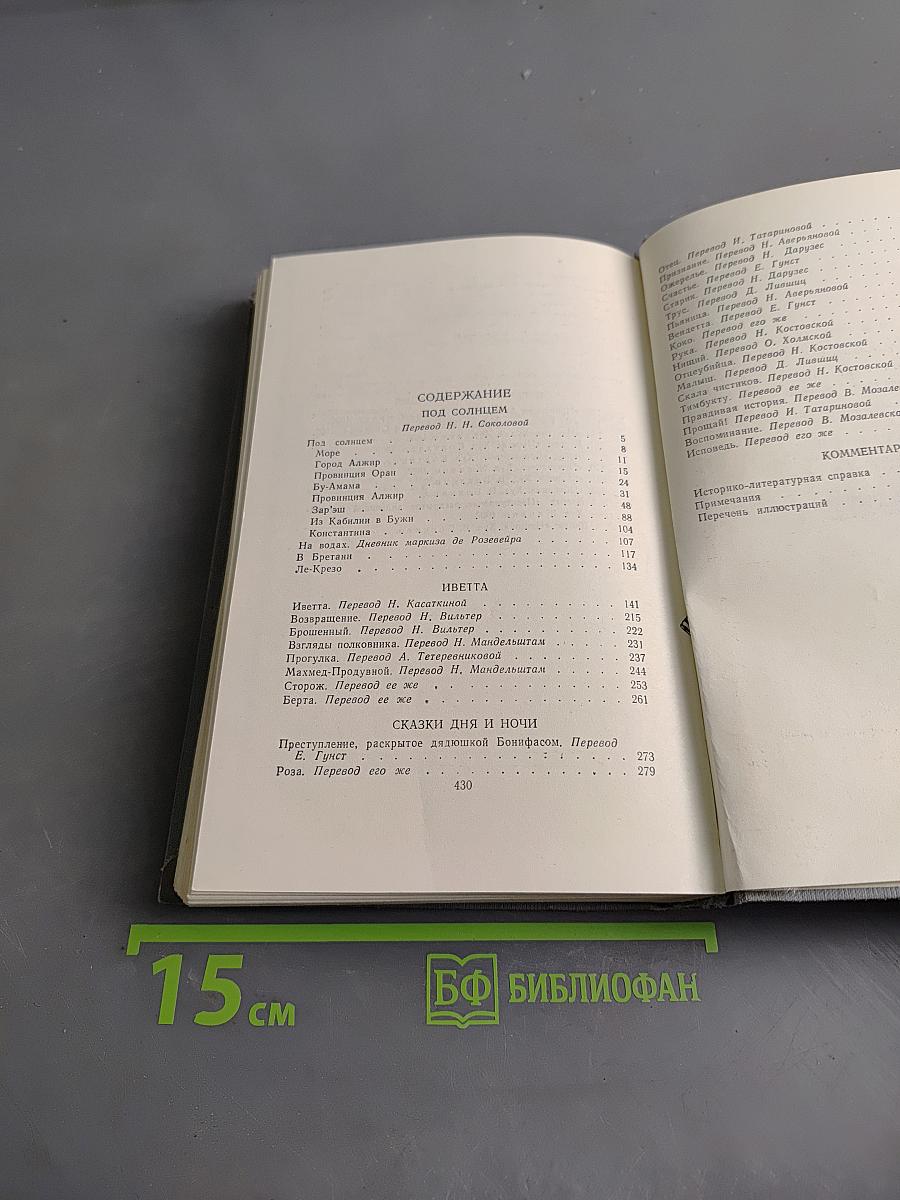 СОДЕРЖАНИЕ
ПОД СОЛНЦЕМ
Перевод Н. Н. Соколовой
Под солнцем . . . . . . . . . . . . . . . . 5
Море . . . . . . . . . . . . . . . . 8
Город Алжир . . . . . . . . . . . . . . . . 11
Провинция Оран . . . . . . . . . . . . . . . . 15
Бу-Амама . . . . . . . . . . . . . . . . 24
Провинция Алжир . . . . . . . . . . . . . . . . 31
Зар'эш . . . . . . . . . . . . . . . . 48
Из Кабилии в Бужи . . . . . . . . . . . . . . . . 88
Константина . . . . . . . . . . . . . . . . 104
На водах. Дневник маркиза де Розевейра . . . . . . . . 107
В Бретани . . . . . . . . . . . . . . . . 117
Ле-Крезо . . . . . . . . . . . . . . . . 134
ИВЕТТА
Иветта. Перевод Н. Касаткиной . . . . . . . . . . 141
Возвращение. Перевод Н. Вильтер . . . . . . . . . . 215
Брошенный. Перевод Н. Вильтер . . . . . . . . . . 222
Взгляды полковника. Перевод Н. Мандельштам . . . . . 231
Прогулка. Перевод А. Тетеревниковой . . . . . . . . 237
Махмед-Продувной. Перевод Н. Мандельштам . . . . . 244
Сторож. Перевод ее же . . . . . . . . . . . . 253
Берта. Перевод ее же . . . . . . . . . . . . 261
СКАЗКИ ДНЯ И НОЧИ
Преступление, раскрытое дядюшкой Бонифасом. Перевод
Е. Гунст . . . . . . . . . . . . . . . . 273
Роза. Перевод его же . . . . . . . . . . . . 279
430
Отец. Перевод И. Татариновой . . . . .
Признание. Перевод Н. Аверьяновой . . . .
Ожерелье. Перевод Н. Дарузес . . . .
Счастье. Перевод Е. Гунст . . . .
Старик. Перевод Н. Дарузес . . . .
Трус. Перевод Д. Лившиц . . . .
Пьяница. Перевод Н. Аверьяновой . . . .
Вендетта. Перевод Е. Гунст . . . .
Коко. Перевод его же . . . .
Рука. Перевод Н. Костовской . . . .
Нищий. Перевод О. Холмской . . . .
Отцеубийца. Перевод Н. Костовской . . . .
Малыш. Перевод Д. Лившиц . . . .
Скала чистиков. Перевод Н. Костовской
Тимбукту. Перевод ее же . . . .
Правдивая история. Перевод В. Мозале
Прощай! Перевод И. Татариновой . . . .
Воспоминание. Перевод В. Мозалевско
Исповедь. Перевод его же . . . .
КОММЕНТАР
Историко-литературная справка . .
Примечания . . . .
Перечень иллюстраций . . . .
15 см
БФ БИБЛИОФАН